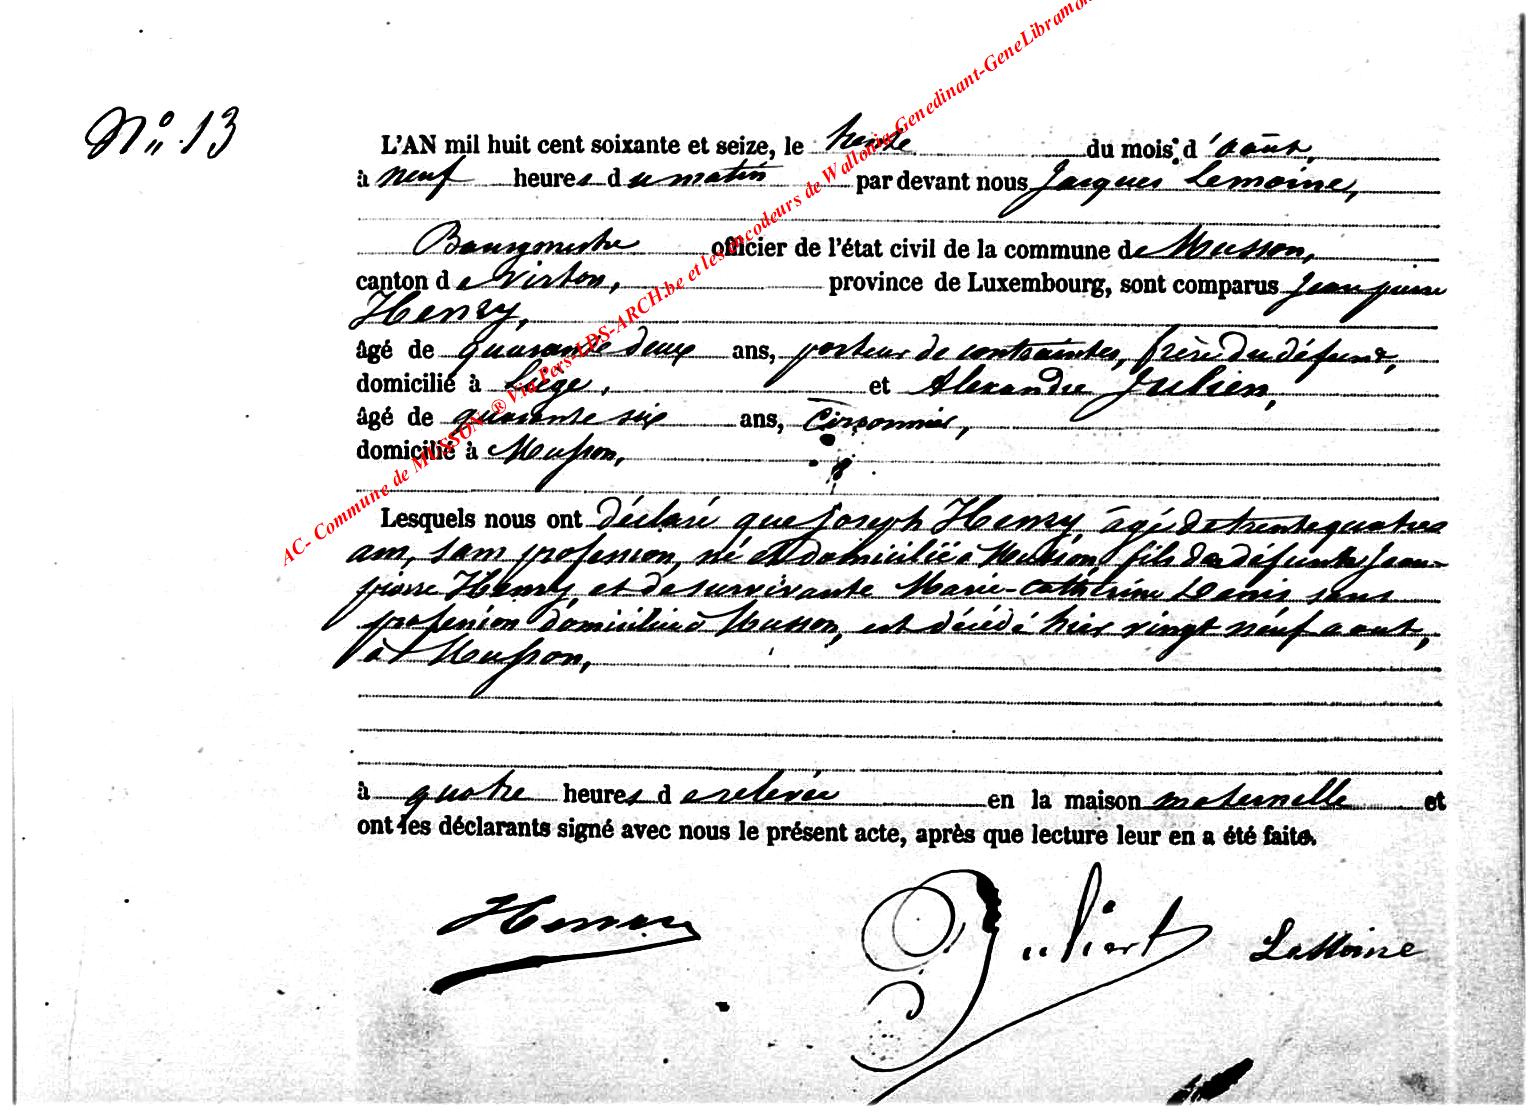 N° 13
L'AN mil huit cent soixante et seize, le trente du mois d'août,
à neuf heures du matin par devant nous Jacques Lemoine,
Bourgmestre officier de l'état civil de la commune de Musson,
canton de Virton, province de Luxembourg, sont comparus Jean pierre
Henry,
âgé de quarante deux ans, porteur de contraintes, frère du défunt,
domicilié à et Alexandre Julien,
âgé de quarante six ans,
domicilié à Musson,
Lesquels nous ont déclaré que Joseph Henry âgé de trente quatre
ans, sans profession, né et domicilié à Musson, fils de défunt Jean-
pierre Henry et de survivante Marie-Catherine Denis sans
profession domiciliée à Musson, est décédé hier vingt neuf aout,
à Musson,
à quatre heures de relevée en la maison maternelle et
ont les déclarants signé avec nous le présent acte, après que lecture leur en a été faite.
Henry LeMoine
AC- Commune de MUSSON ® Via Pers-LDS-ARCH.be et les encodeurs de Wallonia-Genedinant-GeneLibramon